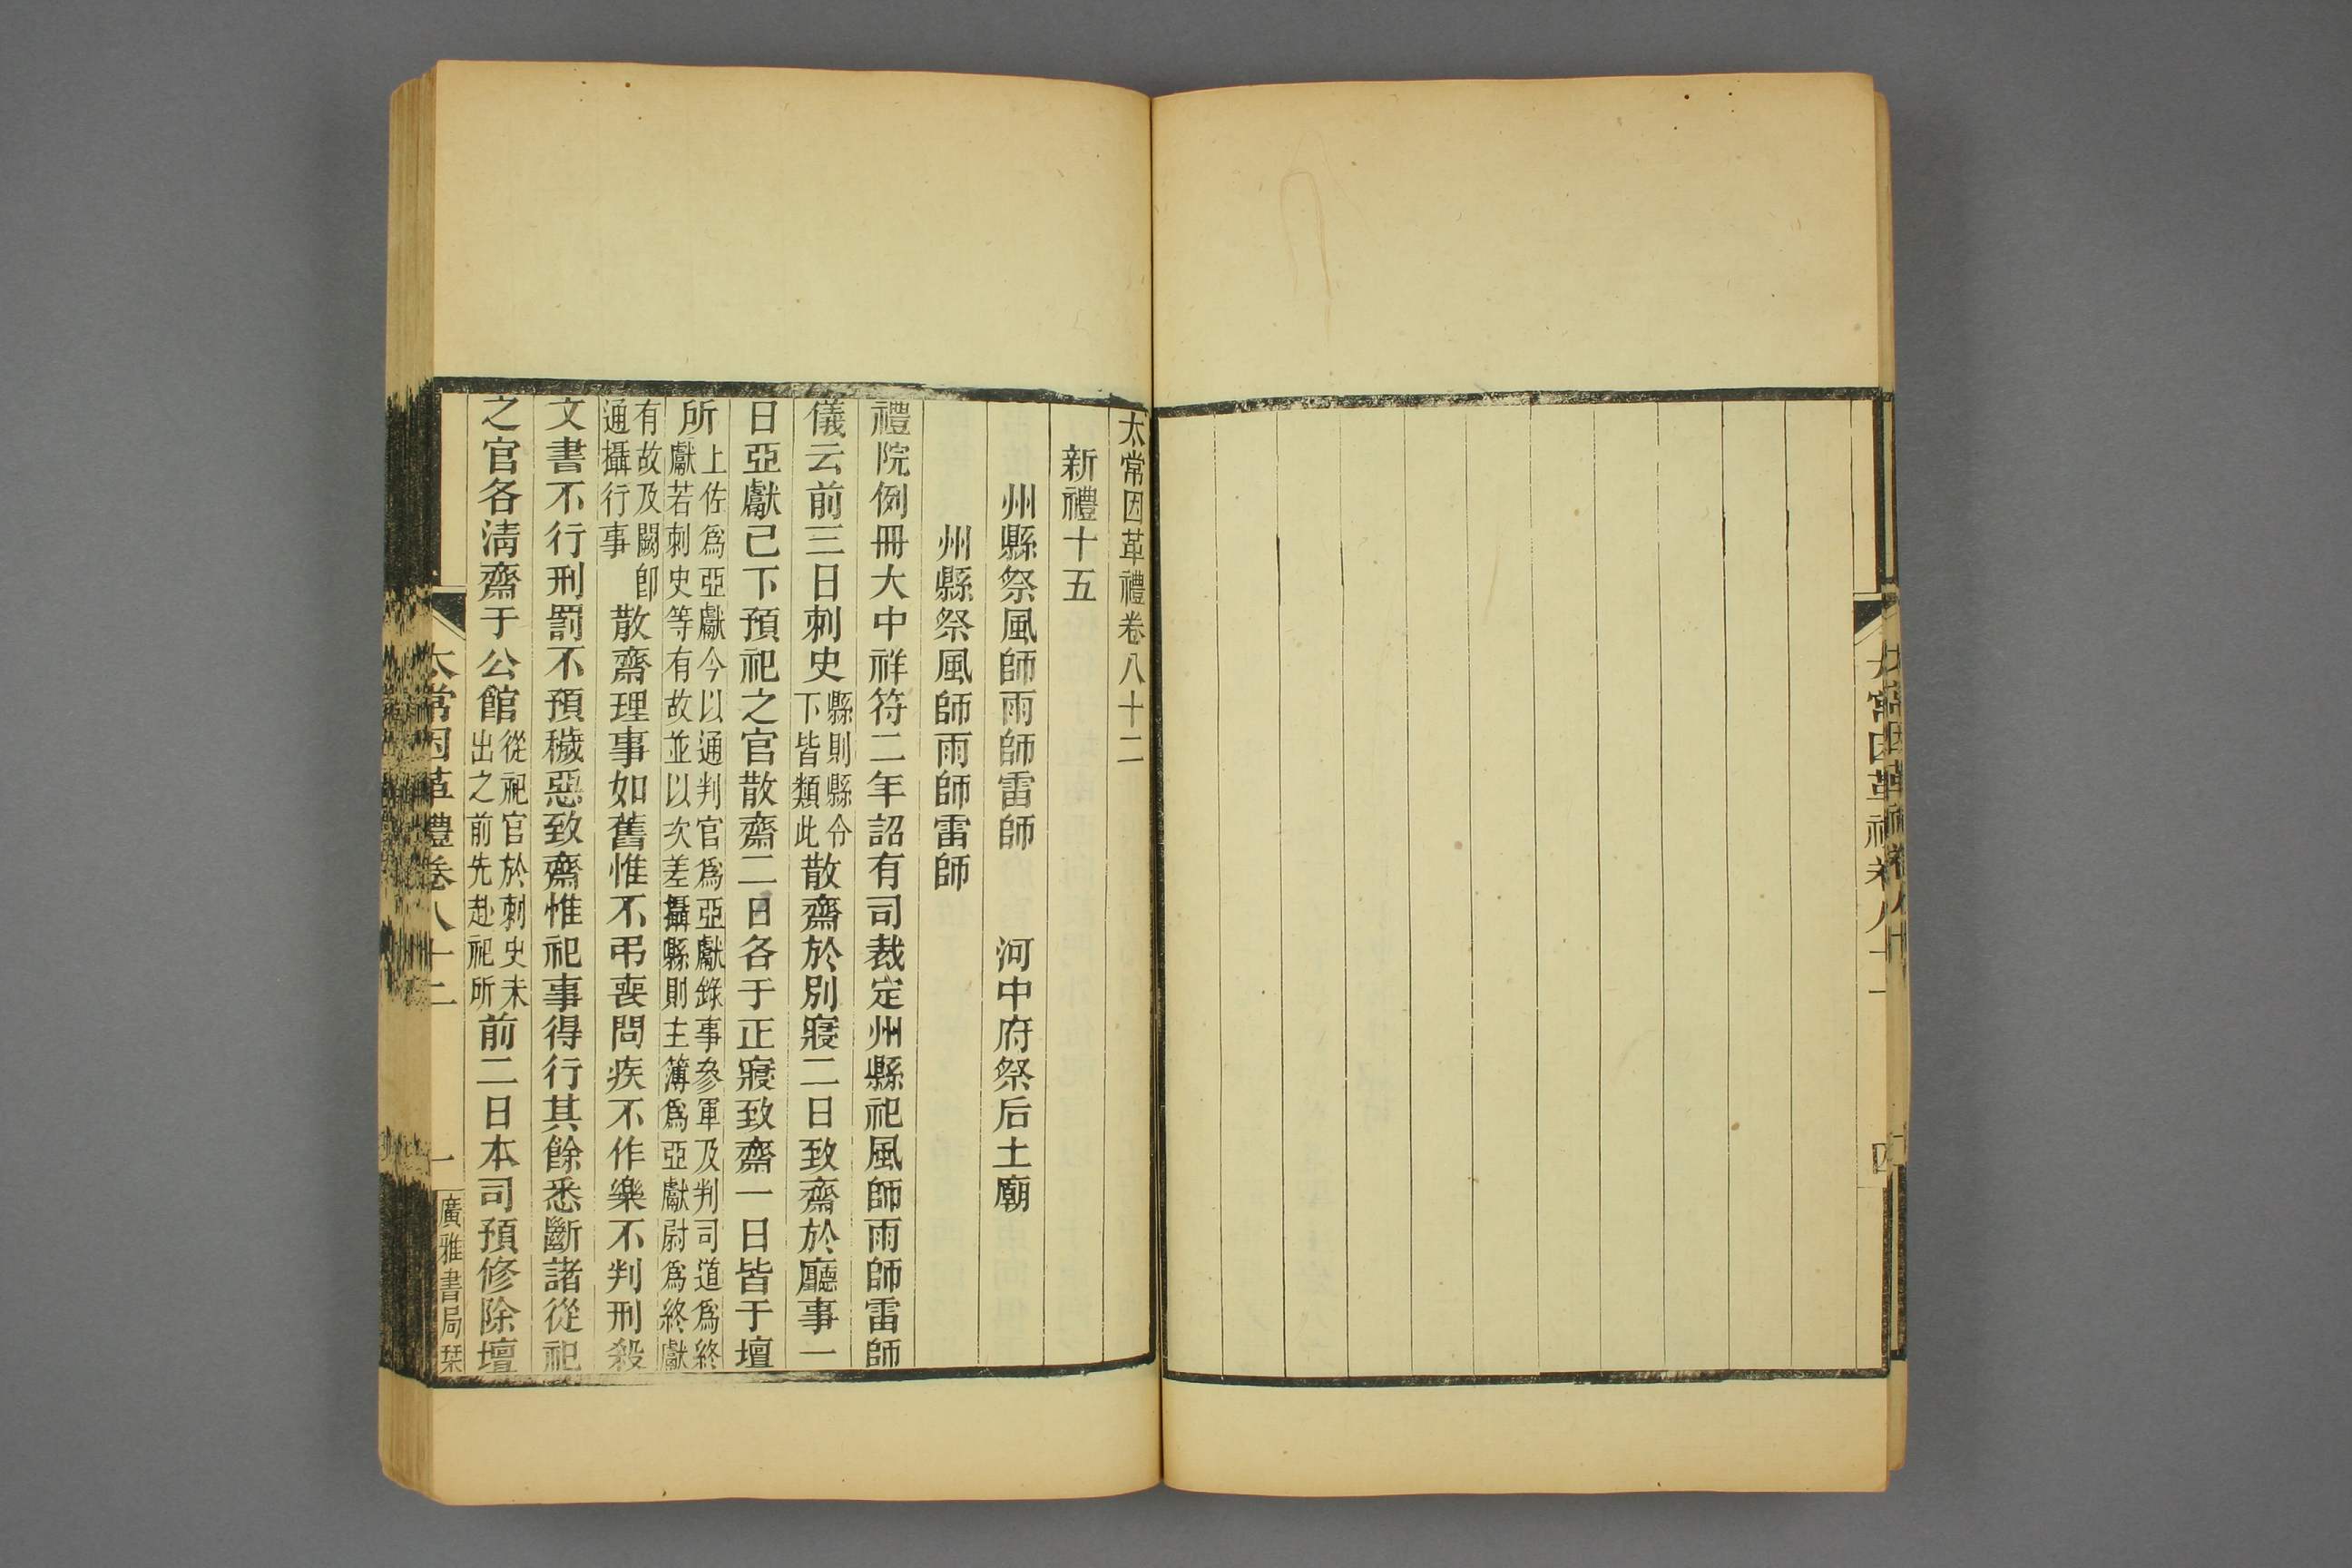 太常因革禮卷八十二
新禮十五
州縣祭風師雨師雷師　河中府祭后土廟
州縣祭風師雨師雷師
禮院例冊大中祥符二年詔有司裁定州縣祀風師雨師雷師
儀云前三日刺史縣則縣令下皆類此散齋於別寢二日致齋於廳事一
日亞獻已下預祀之官散齋二日各于正寢致齋一日皆于壇
所上佐為亞獻今以通判官為亞獻錄事參軍及判司道為終獻若刺史等有故並以次差攝縣則主簿為亞獻尉為終獻
有故及闕卽通攝行事散齋理事如舊惟不弔喪問疾不作樂不判刑殺
文書不行刑罰不預穢惡致齋惟祀事得行其餘悉斷諸從祀
之官各淸齋于公館從祀官於刺史未出之前先赴祀所前二日本司預修除壇
太常因革禮卷八十二
一
廣雅書局栞